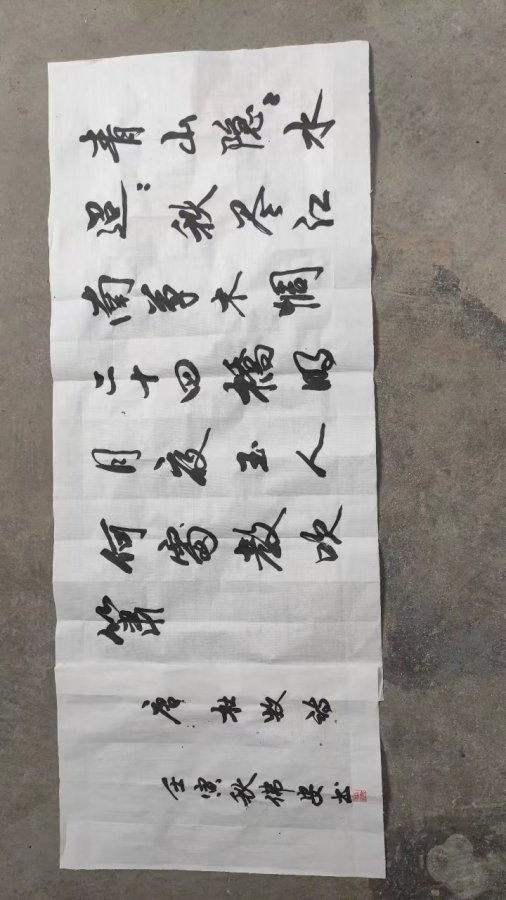 青山隐〻水
迢〻秋尽江
南草木凋
二十四橋明
月夜玉人
何處教吹
箫
唐杜牧诗
壬寅秋佛安书